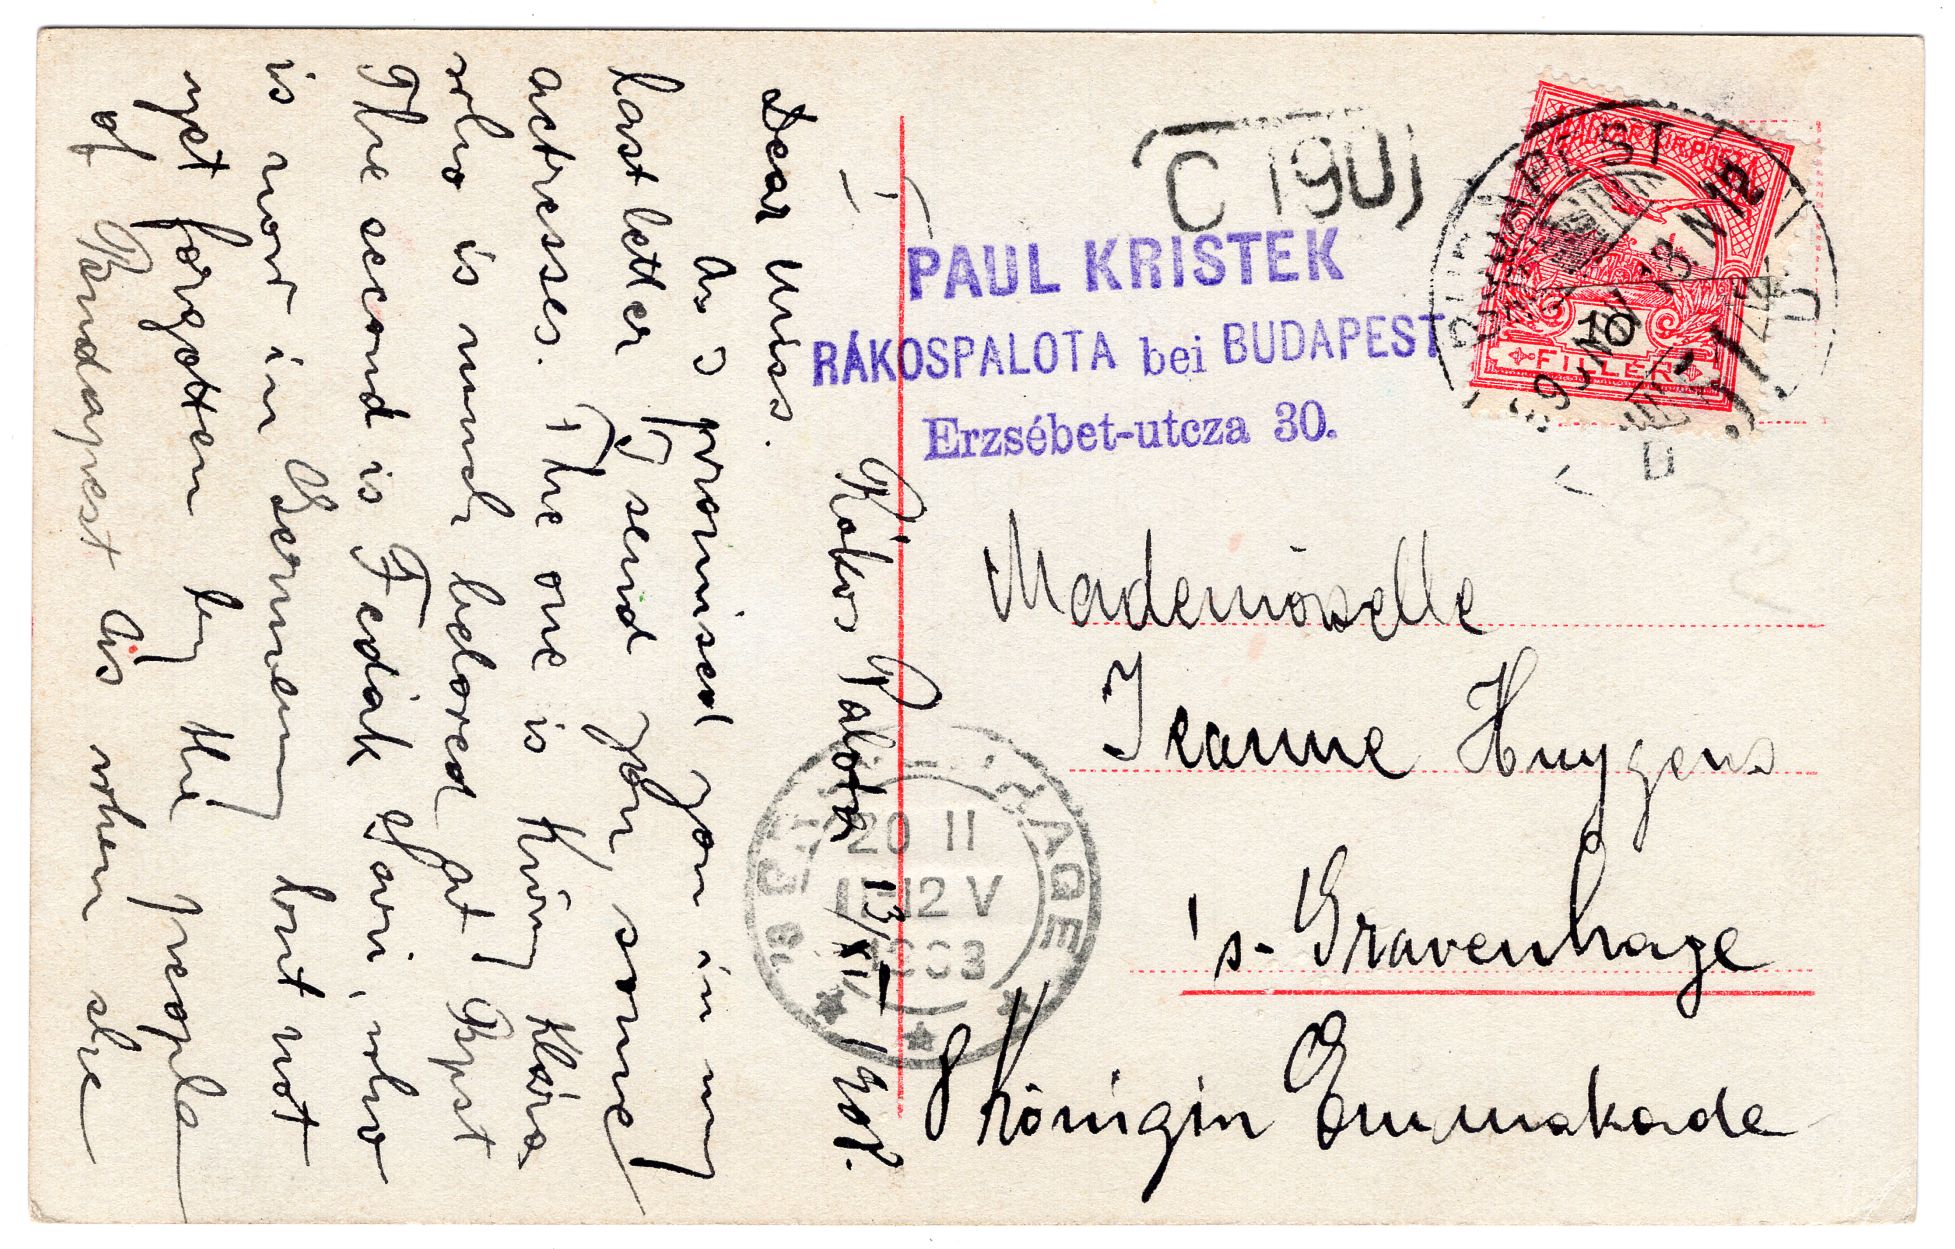 Rákos Palota 13/XII 1908.
Dear Miss.
As I promised you in my
last letter I send you, some
actresses. The one is Küry Klára
who is much beloved at Bpst
The second is Fedák Sári, who
is now in Germany but not
yet forgotten by the people
of Budapest as when she
C 190
PAUL KRISTEK
RÁKOSPALOTA bei BUDAPEST
Erzsébet-utcza 30.
MAGYAR KIR. POSTA
10
FILLÉR
BUDAPEST
Mademoiselle
Jeanne Huygens
's-Gravenhage
8 Königin Emmakade
20 11
11-12 V